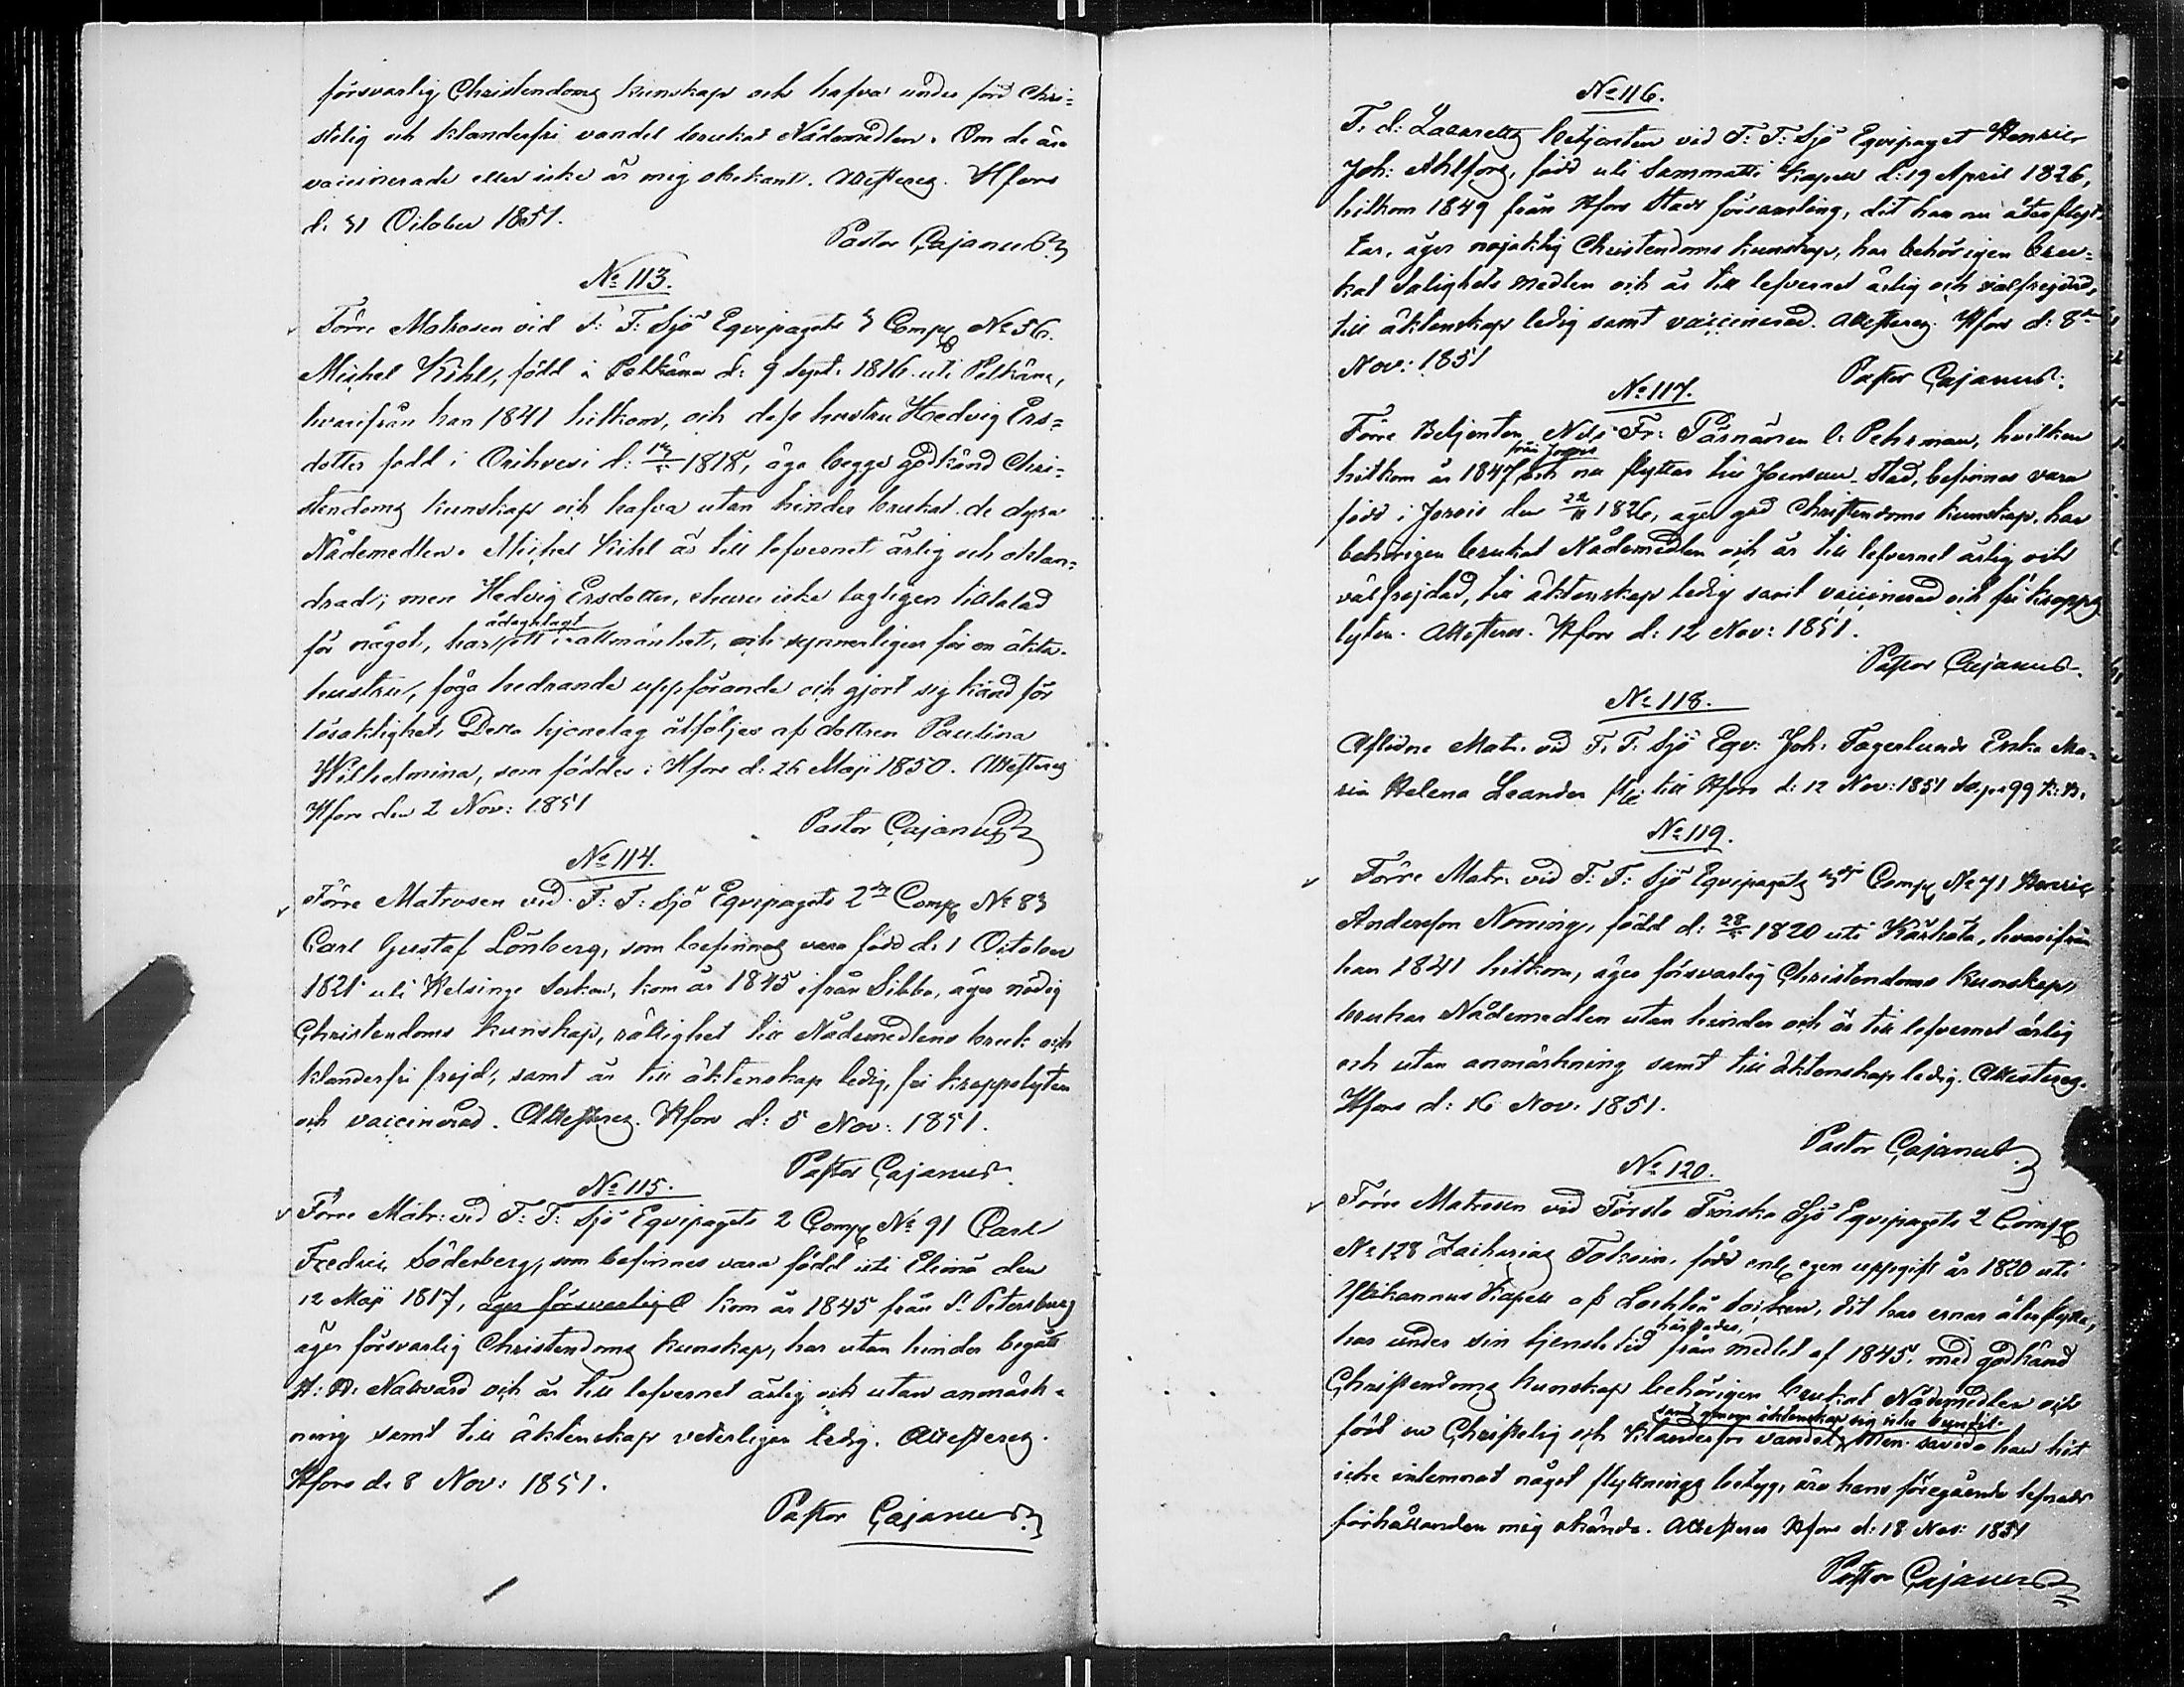 försvarlig Christendoms kunskap och hafva under förd Chri=
stelig och klanderfri vandel brukat Nådemedlen. Om de äro
vaccinerade eller icke är mig obekant. Attesteras. Hfors
d. 31 October 1851.
Pastor Cajanus
No 113.
Förre Matrosen vid F: F: Sjö Equipagets 3 Comp No 56.
Michel Kihl, född i Pelkäne d: 9 Sept: 1816 uti Pelkäne,
hvarifrån han 1841 hitkom, och dess hustru Hedvig Ers=
dotter född i Orihvesi d: 1818, äga begge godkänd Chri=
stendoms kunskap och hafva utan hinder brukat de dyra
Nådemedlen. Michel Kihl är till lefvernet ärlig och oklan=
drad; men Hedvig Ersdotter, ehuru icke lagligen tilltalad
för något, har ådagalagt ett i allmänhet, och synnerligen för en äkta
hustru, föga hedrande uppförande och gjort sig känd för
lösaktighet. Detta hjonelag åtföljes af dottren Paulina
Wilhelmina, som föddes i Hfors d: 26 Maji 1850. Attesteras
Hfors den 2 Nov: 1851
Pastor Cajanus
No 114.
Förre Matrosen vid F: F: Sjö Equipagets 2dra Comp No 83
Carl Gustaf Lönberg, som befinnes vara född d: 1 October
1821 uti Helsinge Socken, kom år 1845 ifrån Sibbo, äger nödig
Christendoms kunskap, rättighet till Nådemedlens bruk och
klanderfri frejd, samt är till äktenskap ledig, fri kroppslyten
och vaccinerad. Attesteras. Hfors d: 5 Nov: 1851.
Pastor Cajanus
No 115.
Förre Matr: vid F: F: Sjö Equipagets 2 Comp No 91 Carl
Fredric Söderberg, som befinnes vara född uti Elimä den
12 Maji 1817, äger försvarlig C kom år 1845 från St Petersburg
äger försvarlig Christendoms kunskap, har utan hinder begått
H: H: Nattvard och är till lefvernet ärlig och utan anmärk=
ning samt till äktenskap veterligen ledig. Attesteras.
Hfors d. 8 Nov: 1851.
Pastor Cajanus
No 116.
F. d: Lazaretts betjenten vid F: F: Sjö Equipaget Henric
Joh: Ahlfors, född uti Sammatti Kapell d: 19 April 1826,
hitkom 1849 från Hfors Stads församling, dit han nu återflyt=
tar, äger nöjaktig Christendoms kunskap, har behörigen bru=
kat Salighets medlen och är till lefvernet ärlig och välfrejdad,
till äktenskap ledig samt vaccinerad. Attesteras. Hfors d: 8de
Nov: 1851
Pastor Cajanus.
No 117.
Förre Betjenten Nils Fr: Pärnänen l. Pehrman, hvilken
hitkom år 1847 från Jorois och nu flyttar till Joensuu Stad, befinnes vara
född i Jorois den 1826, äger god Christendoms kunskap, har
behörigen brukat Nådemedlen och är till lefvernet ärlig och
välfrejdad, till äktenskap ledig samt vaccinerad och fri kropps
lyten. Attesteras. Hfors d: 12 Nov: 1851.
Pastor Cajanus.
No 118.
Aflidne Matr. vid F. F. Sjö Eqv: Joh: Fagerlunds Enka Ma=
ria Helena Leander till Hfors d: 12 Nov: 1851 99 K: B.
No 119.
Förre Matr: vid F: F: Sjö Equipagets 3dje Comp No 71 Henric
Andersson Norring, född d: 1820 uti Kärkola, hvarifrån
han 1841 hitkom, äger försvarlig Christendoms kunskap,
brukar Nådemedlen utan hinder och är till lefvernet ärlig
och utan anmärkning samt till äktenskap ledig. Attesteras.
Hfors d: 16 Nov: 1851.
Pastor Cajanus
No 120.
Förre Matrosen vid Första Finska Sjö Equipagets 2 Comp
No 128 Zacharias Tokoin, född enl. egen uppgift år 1820 uti
Kapell af Lochteå Socken, dit han ernar återflytta,
har under sin tjenstetid härstädes, från medlet af 1845, med godkänd
Christendoms kunskap behörigen brukat Nådemedlen och
fört en Christelig och klanderfri vandel, samt genom äktenskap sig icke bundit. Men savida han hit
icke inlemnat något flyttnings betyg, äro hans föregående lefnads
förhållanden mig okände. Attesteras Hfors d: 18 Nov: 1851
Pastor Cajanus